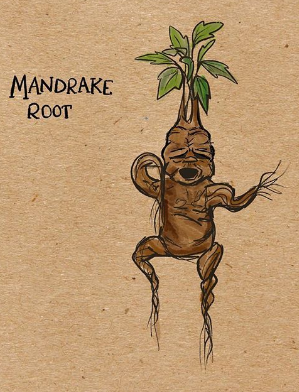 MANDRAKE
ROOT